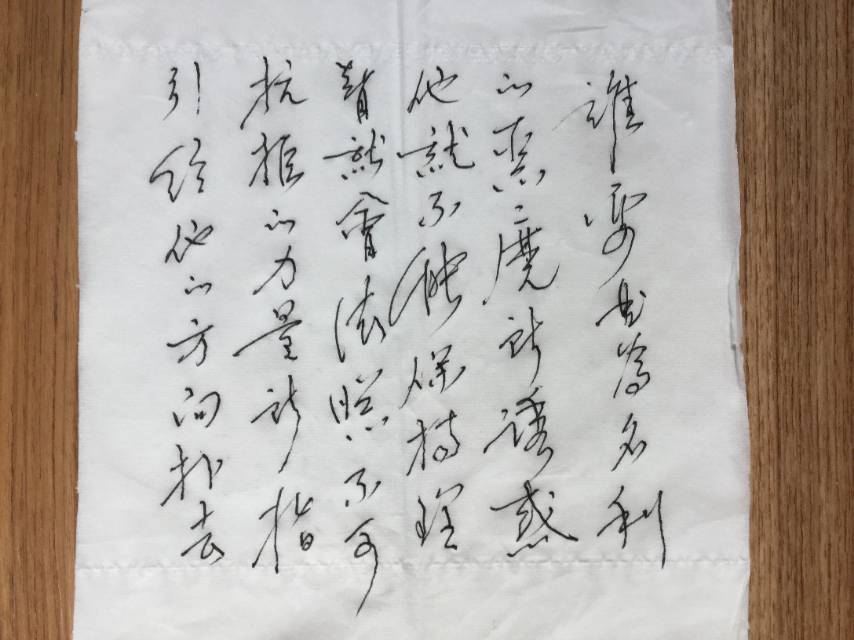 誰要是為名利
的惡魔所誘惑
他就不能保持理
智就會依照不可
抗拒的力量所指
引給他的方向扑去